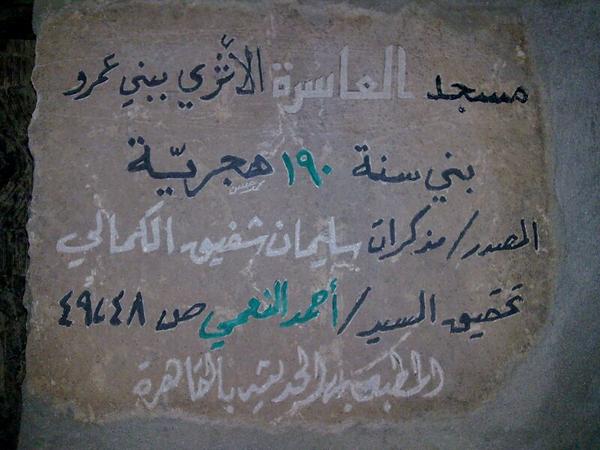 مسجد العاسرة الأثري ببني عمرو
بني سنة ١٩٠ هجريّة
المصدر/مذكرات سليمان شفيق الكمالي
تحقيق السيد/أحمد النعمي ص ٤٩،٤٨
بالقاهرة